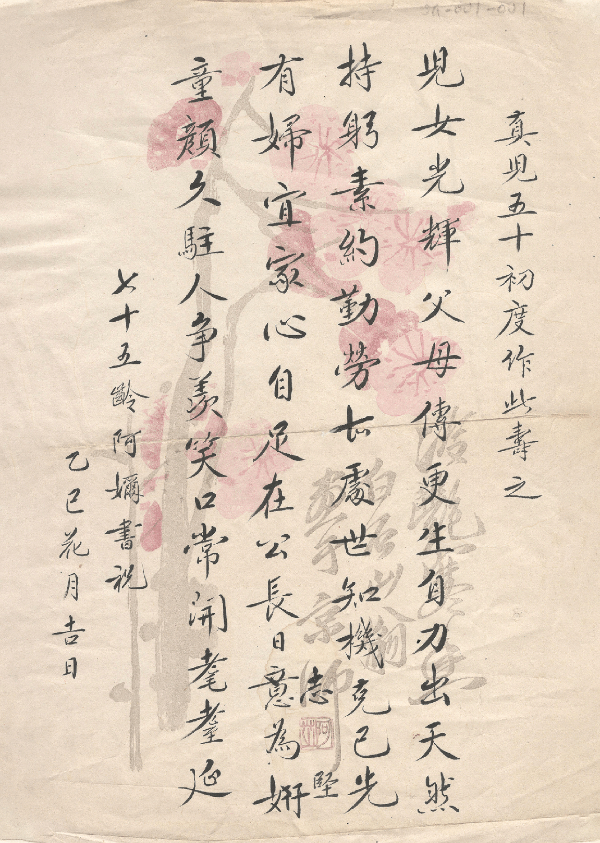 真児五十初度作此壽之
児女光輝父母傳更生自力出天然
持躬素約勤勞長處世知機克己先
志堅
有婦宜家心自足在公長日意為妍
童顔久駐人争羨笑口常開耄耋延
七十五齡阿姍書祝
乙巳花月吉日